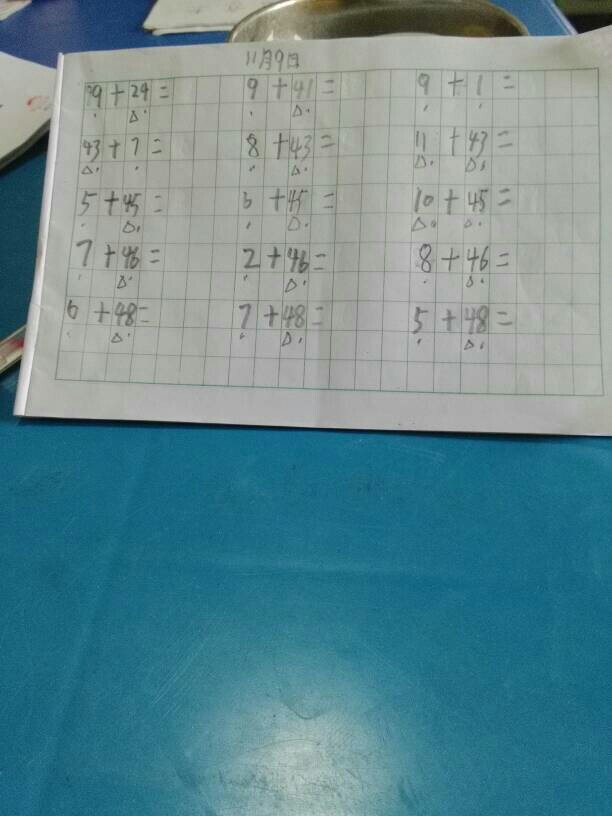 11月9日
9+24= 9+41= 9+1=
43+7= 8+43= 11+43=
5+45= 3+45= 10+45=
7+46= 2+46= 8+46=
6+48= 7+48= 5+48=